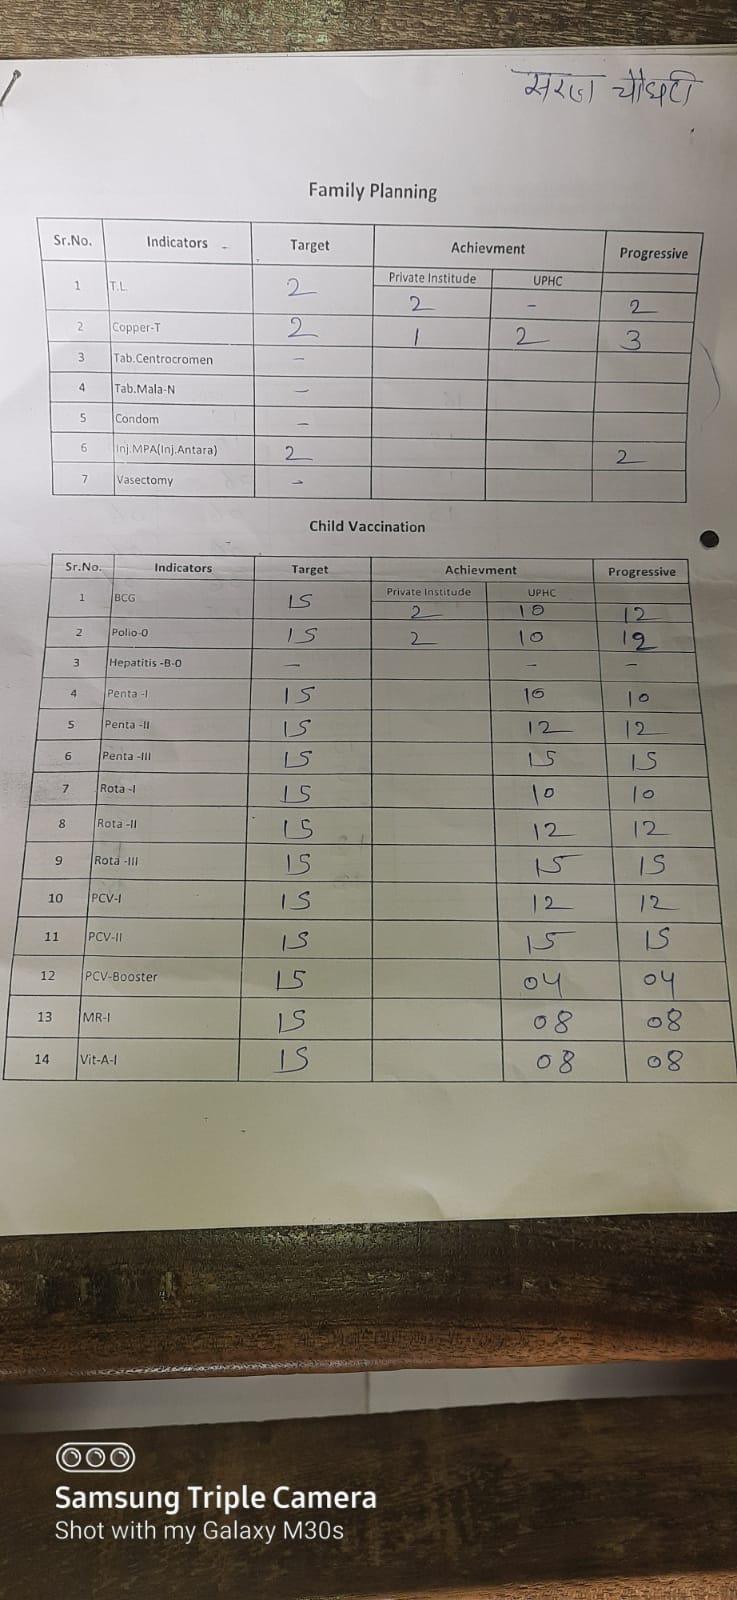 चौधरी
Family Planning
Sr.No. Indicators Target Achievment Progressive
Private Institude UPHC
1 T.L. 2 2 - 2
2 Copper-T 2 1 2 3
3 Tab.Centrocromen -
4 Tab.Mala-N -
5 Condom -
6 Inj.MPA(Inj.Antara) 2 2
7 Vasectomy -
Child Vaccination
Sr.No. Indicators Target Achievment Progressive
Private Institude UPHC
1 BCG 15 2 10 12
2 Polio-0 15 2 10 12
3 Hepatitis -B-0 - - -
4 Penta -I 15 10 10
5 Penta -II 15 12 12
6 Penta -III 15 15 15
7 Rota -I 15 10 10
8 Rota -II 15 12 12
9 Rota -III 15 15 15
10 PCV-I 15 12 12
11 PCV-II 15 15 15
12 PCV-Booster 15 04 04
13 MR-I 15 08 08
14 Vit-A-I 15 08 08
Samsung Triple Camera
Shot with my Galaxy M30s